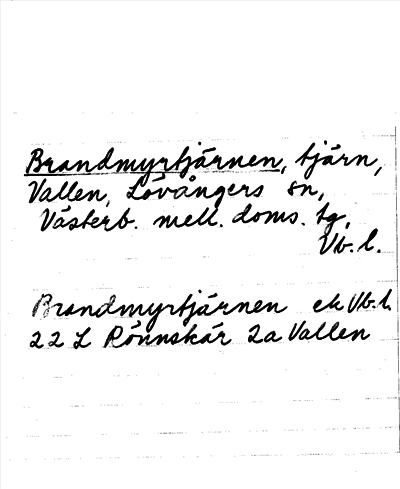 Brandmyrtjärnen, tjärn,
Vallen, Lövångers sn,
Västerb. mell. doms. tg,
Vb. l.
Brandmyrtjärnen ek Vb. l.
22 L Rönnskär 2a Vallen